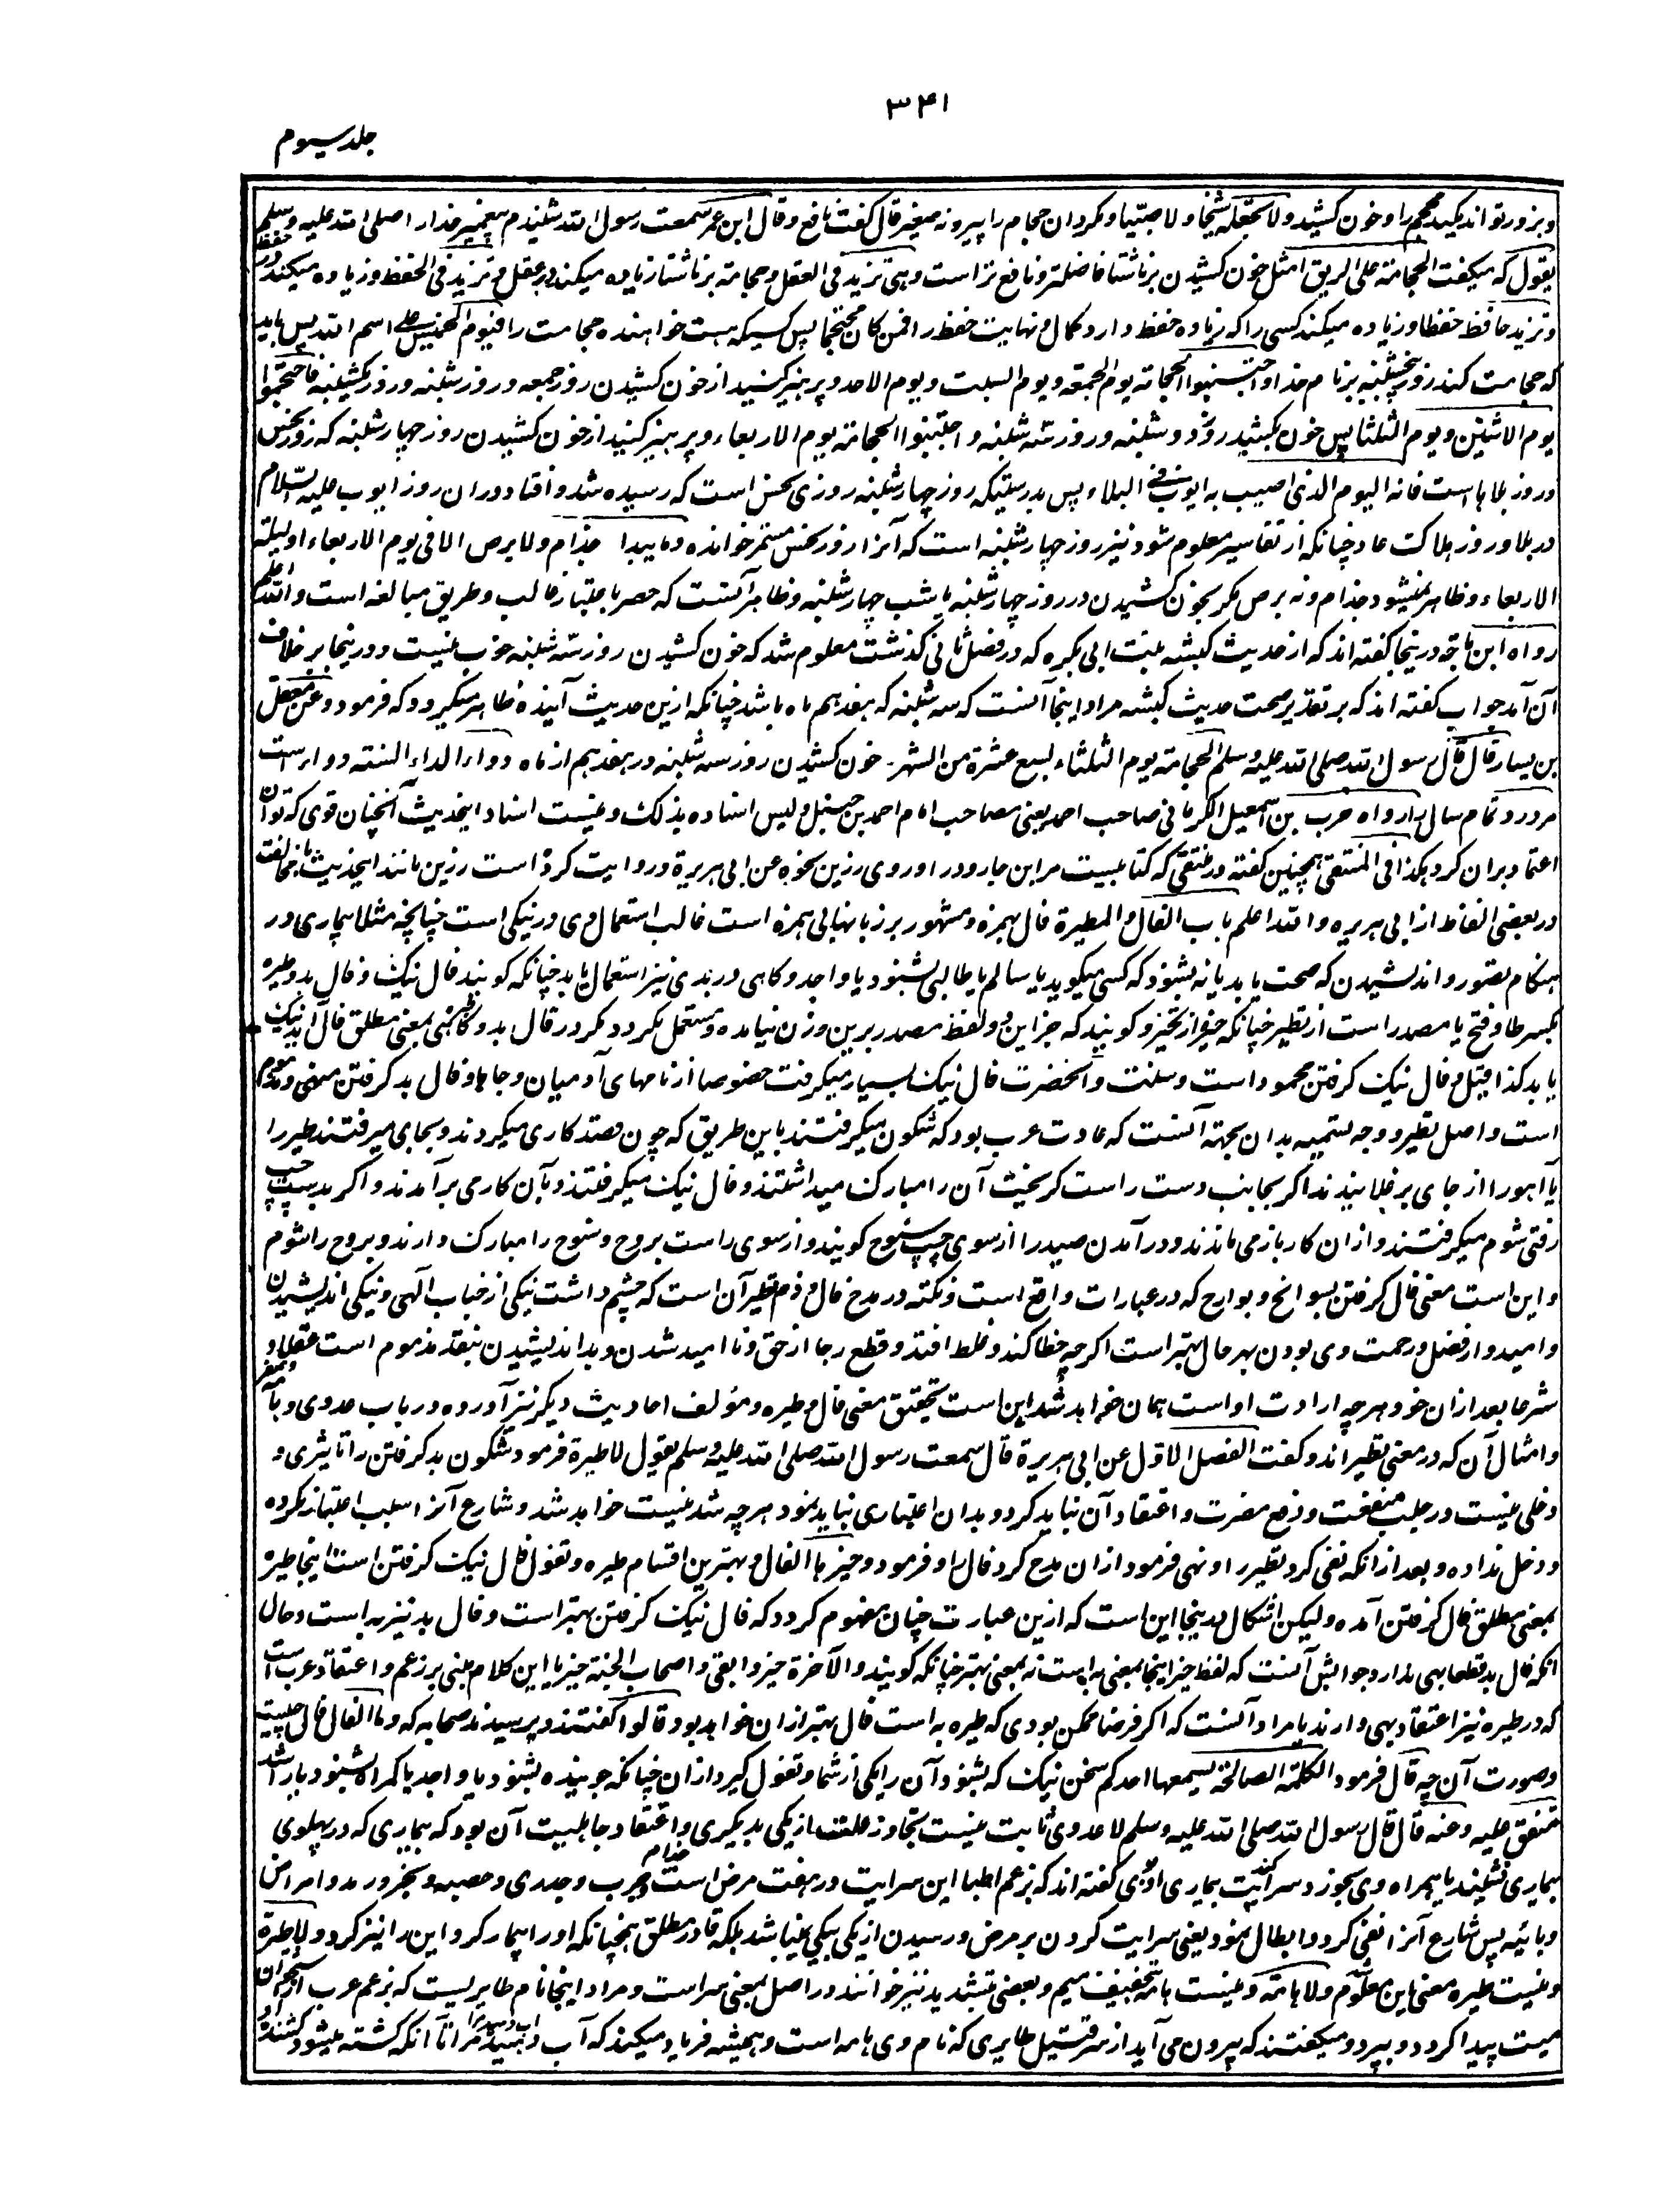 ۳۴۱
جلد سیوم
و بزور تواند مکید محجم را و خون کشید و لا تجعله شیخا و لا صبیا و مگردان حجام را پیر و نه صغیر قال گفت نافع و قال ابن عمر سمعت رسول الله شنیدم پیغمبر خدا را صلی الله علیه وسلم
یقول که میگفت الحجامة علی الریق امثل خون کشیدن بر ناشتا فاضلتر و نافع تر است و هی تزید فی العقل و حجامة بر ناشتا زیاده میکند در عقل و تزید فی الحفظ و زیاده میکند در حفظ
و تزید حافظ حفظا و زیاده میکند کسی را که زیاده حفظ دارد کمال و نهایت حفظ را فمن کان محتجما پس کسیکه هست خواهنده حجامت را فیوم الخمیس علی اسم الله پس باید
که حجامت کند روز پنجشنبه بر نام خدا و اجتنبوا الحجامة یوم الجمعة و یوم السبت و یوم الاحد و پرهیز کنید از خون کشیدن روز جمعه و روز شنبه و روز یکشنبه فاحتجموا
یوم الاثنین و یوم الثلثا پس خون بکشید روز دوشنبه و روز سه شنبه و اجتنبوا الحجامة یوم الاربعاء و پرهیز کنید از خون کشیدن روز چهارشنبه که روز نحس
و روز بلاها است فانه الیوم الذی اصیب به ایوب فی البلاء پس بدرستیکه روز چهارشنبه روزی نحس است که رسیده شد و افتاد دران روز ایوب علیه السلام
در بلا و روز هلاکت عاد چنانکه از تفاسیر معلوم شود نیز روز چهارشنبه است که آنرا روز نحس مستمر خوانده و ما یبدا جذام و لا برص الا فی یوم الاربعاء او لیلة
الاربعاء و ظاهر نمیشود جذام و نه برص مگر بخون کشیدن در روز چهارشنبه یا شب چهارشنبه و ظاهر آنست که حصر باعتبار غالب و طریق مبالغه است و الله اعلم
رواه ابن ماجة در ینجا گفته اند که از حدیث کبشه بنت ابی بکره که در فصل ثانی گذشت معلوم شد که خون کشیدن روز سه شنبه خوب نیست و در ینجا بر خلاف
آن آمد جواب گفته اند که بر تقدیر صحت حدیث کبشه مراد اینجا آنست که سه شنبه که هفدهم ماه باشد چنانکه ازین حدیث آینده ظاهر میگردد که فرمود و عن معقل
بن یسار قال قال رسول الله صلی الله علیه وسلم الحجامة یوم الثلثاء لسبع عشرة من الشهر خون کشیدن روز سه شنبه در هفدهم از ماه دواء الداء السنة دوا است
مر درد تمام سال را رواه حرب بن اسمعیل الکرمانی صاحب احمد یعنی مصاحب امام احمد بن حنبل و لیس اسناده بذلک و نیست اسناد اینحدیث آنچنان قوی که توان
اعتماد بران کرد هکذا فی المنتقی همچنین گفته در منتقی که کتابیست مر ابن جارود را و روی رزین نحوه عن ابی هریرة و روایت کرده است رزین مانند اینحدیث با مخالفت
در بعضی الفاظ از ابی هریره و الله اعلم باب الفال و الطیرة فال بهمزه و مشهور بر زبانها بی همزه است غالب استعمال وی در نیکی است چنانچه مثلا بیماری در
هنگام تصور و اندیشیدن که صحت یابد یا نه بشنود که کسی میگوید یا سالم یا طالبی بشنود یا واجد و گاهی در بدی نیز استعمال یابد چنانکه گویند فال نیک و فال بد و طیره
بکسر طا و فتح یا مصدر است از تطیر چنانکه خیره از تخیر و گویند که جز این دو لفظ مصدر برین وزن نیامده و مستعمل نگردد مگر در فال بد و گاهی بمعنی مطلق فال آید نیک
یا بد کذا قیل و فال نیک گرفتن محمود است و سنت و آنحضرت فال نیک بسیار میگرفت خصوصا از نامهای آدمیان و جاها و فال بد گرفتن منهی و مذموم
است و اصل تطیر و وجه تسمیه بدان بجهت آنست که عادت عرب بود که شگون میگرفتند باین طریق که چون قصد کاری میکردند و بجای میرفتند طیر را
یا آهو را از جای بر غلانیدند اگر بجانب دست راست گریخت آن را مبارک میداشتند و فال نیک میگرفتند و بآن کاری برآمدند و اگر بدست چپ
رفتی شوم میگرفتند و ازان کار باز می ماندند و در آمدن صید را از سوی چپ سنوح گویند و از سوی راست بروح و سنوح را مبارک دارند و بروح را شوم
و این است معنی فال گرفتن بسوانح و بوارح که در عبارات واقع است و نکته در مدح فال و ذم تطیر آن است که چشم داشت نیکی از جناب الهی و نیکی اندیشیدن
و امیدوار فضل و رحمت وی بودن بهر حال بهتر است اگرچه خطا کند و غلط افتد و قطع رجا از حق و ناامید شدن و بد اندیشیدن بنقد مذموم است عقلا و
شرعا بعد ازان خود هرچه ارادت او است همان خواهد شد این است تحقیق معنی فال و طیره و مؤلف احادیث دیگر نیز آورده در باب عدوی و هامه و صفر
و امثال آن که در معنی تطیر اند و گفت الفصل الاول عن ابی هریرة قال سمعت رسول الله صلی الله علیه وسلم یقول لا طیرة فرمود شگون بد گرفتن را تاثیری و
دخلی نیست در جلب منفعت و دفع مضرت و اعتقاد آن نباید کرد و بدان اعتباری نباید نمود هرچه شدنیست خواهد شد و شارع آنرا سبب اعتبار نکرده
و دخل نداده و بعد ازانکه نفی کرد تطیر را و نهی فرمود ازان مدح کرد فال را و فرمود و خیرها الفال و بهترین اقسام طیره و تفول فال نیک گرفتن است اینجا طیره
بمعنی مطلق فال گرفتن آمده ولیکن اشکال در ینجا این است که ازین عبارت چنان مفهوم گردد که فال نیک گرفتن بهتر است و فال بد نیز به است و حال
آنکه فال بد قطعا بهی ندارد و جوابش آنست که لفظ خیر اینجا بمعنی به است نه بمعنی بهتر چنانکه گویند و الآخرة خیر و ابقی و اصحاب الجنة خیر یا این کلام مبنی بر زعم و اعتقاد عرب است
که در طیره نیز اعتقاد بهی دارند یا مراد آنست که اگر فرضا ممکن بودی که طیره به است فال بهتر ازان خواهد بود قالوا گفتند و پرسیدند صحابه که و ما الفال فال چیست
و صورت آن چه قال فرمود الکلمة الصالحة یسمعها احدکم سخن نیک که بشنود آن را یکی از شما و تفول گیرد ازان چنانکه جوینده بشنود یا واجد یا گمراه بشنود یا راشد
متفق علیه و عنه قال قال رسول الله صلی الله علیه وسلم لا عدوی ثابت نیست تجاوز علت از یکی بدیگری و اعتقاد جاهلیت آن بود که بیماری که در پهلوی
بیماری نشیند یا همراه وی بخورد سرایت کند بیماری او بوی گفته اند که بزعم اطبا این سرایت در هفت مرض است جذام و جرب و جدری و حصبه و بخر و رمد و امراض
وبائیه پس شارع آنرا نفی کرد و ابطال نمود یعنی سرایت کردن بر مرض و رسیدن از یکی بیکی نمیباشد بلکه قادر مطلق همچنانکه او را بیمار کرد این را نیز کرد و لا طیرة
و نیست طیره معنی این معلوم و لا هامة و نیست هامه بتخفیف میم و بعضی بتشدید نیز خوانند در اصل بمعنی سر است و مراد اینجا نام طایریست که بزعم عرب از استخوان
میت پیدا گردد و بپرد و میگفتند که بیرون می آید از سر قتیل طایری که نام وی هامه است و همیشه فریاد میکند که آب دهید مرا تا آنکه کشته میشود کشنده او